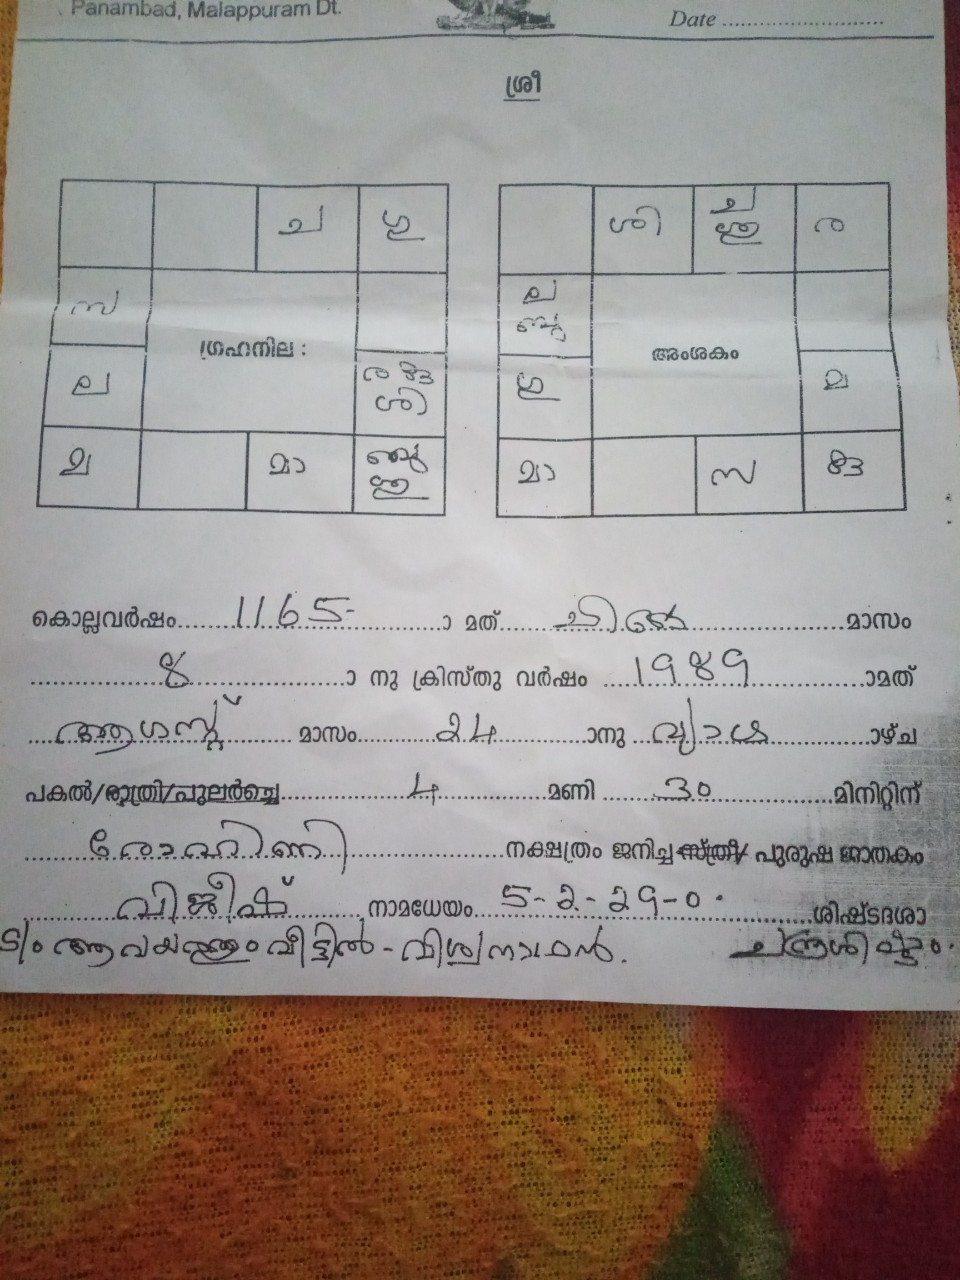 Panambad, Malappuram Dt.
Date ............................
ശ്രീ
ച ഗു
ശി ച ശു ര
സ
ല
ഗ്രഹനില :
ര കു
ശി
ല
ഗു
അംശകം
മ
മ മാ ബു ശു
മാ സ കു
കൊല്ലവർഷം.......1165-..............ാ മത്.......ചിങ്ങം.....................മാസം
..................8......................ാ നു ക്രിസ്തു വർഷം ....1989...............ാമത്
....ആഗസ്റ്റ്......... മാസം..........24..............ാനു ...വ്യാഴ..............ാഴ്ച
പകൽ/രാത്രി/പുലർച്ചെ................4................മണി ......30.................മിനിറ്റിന്
........രോഹിണി......................നക്ഷത്രം ജനിച്ച സ്ത്രീ/ പുരുഷ ജാതകം
............വിജീഷ്......... നാമധേയം....5-2-29-0.............ശിഷ്ടദശാ
വീട്ടിൽ - വിശ്വനാഥൻ. ചന്ദ്രശിഷ്ടം.